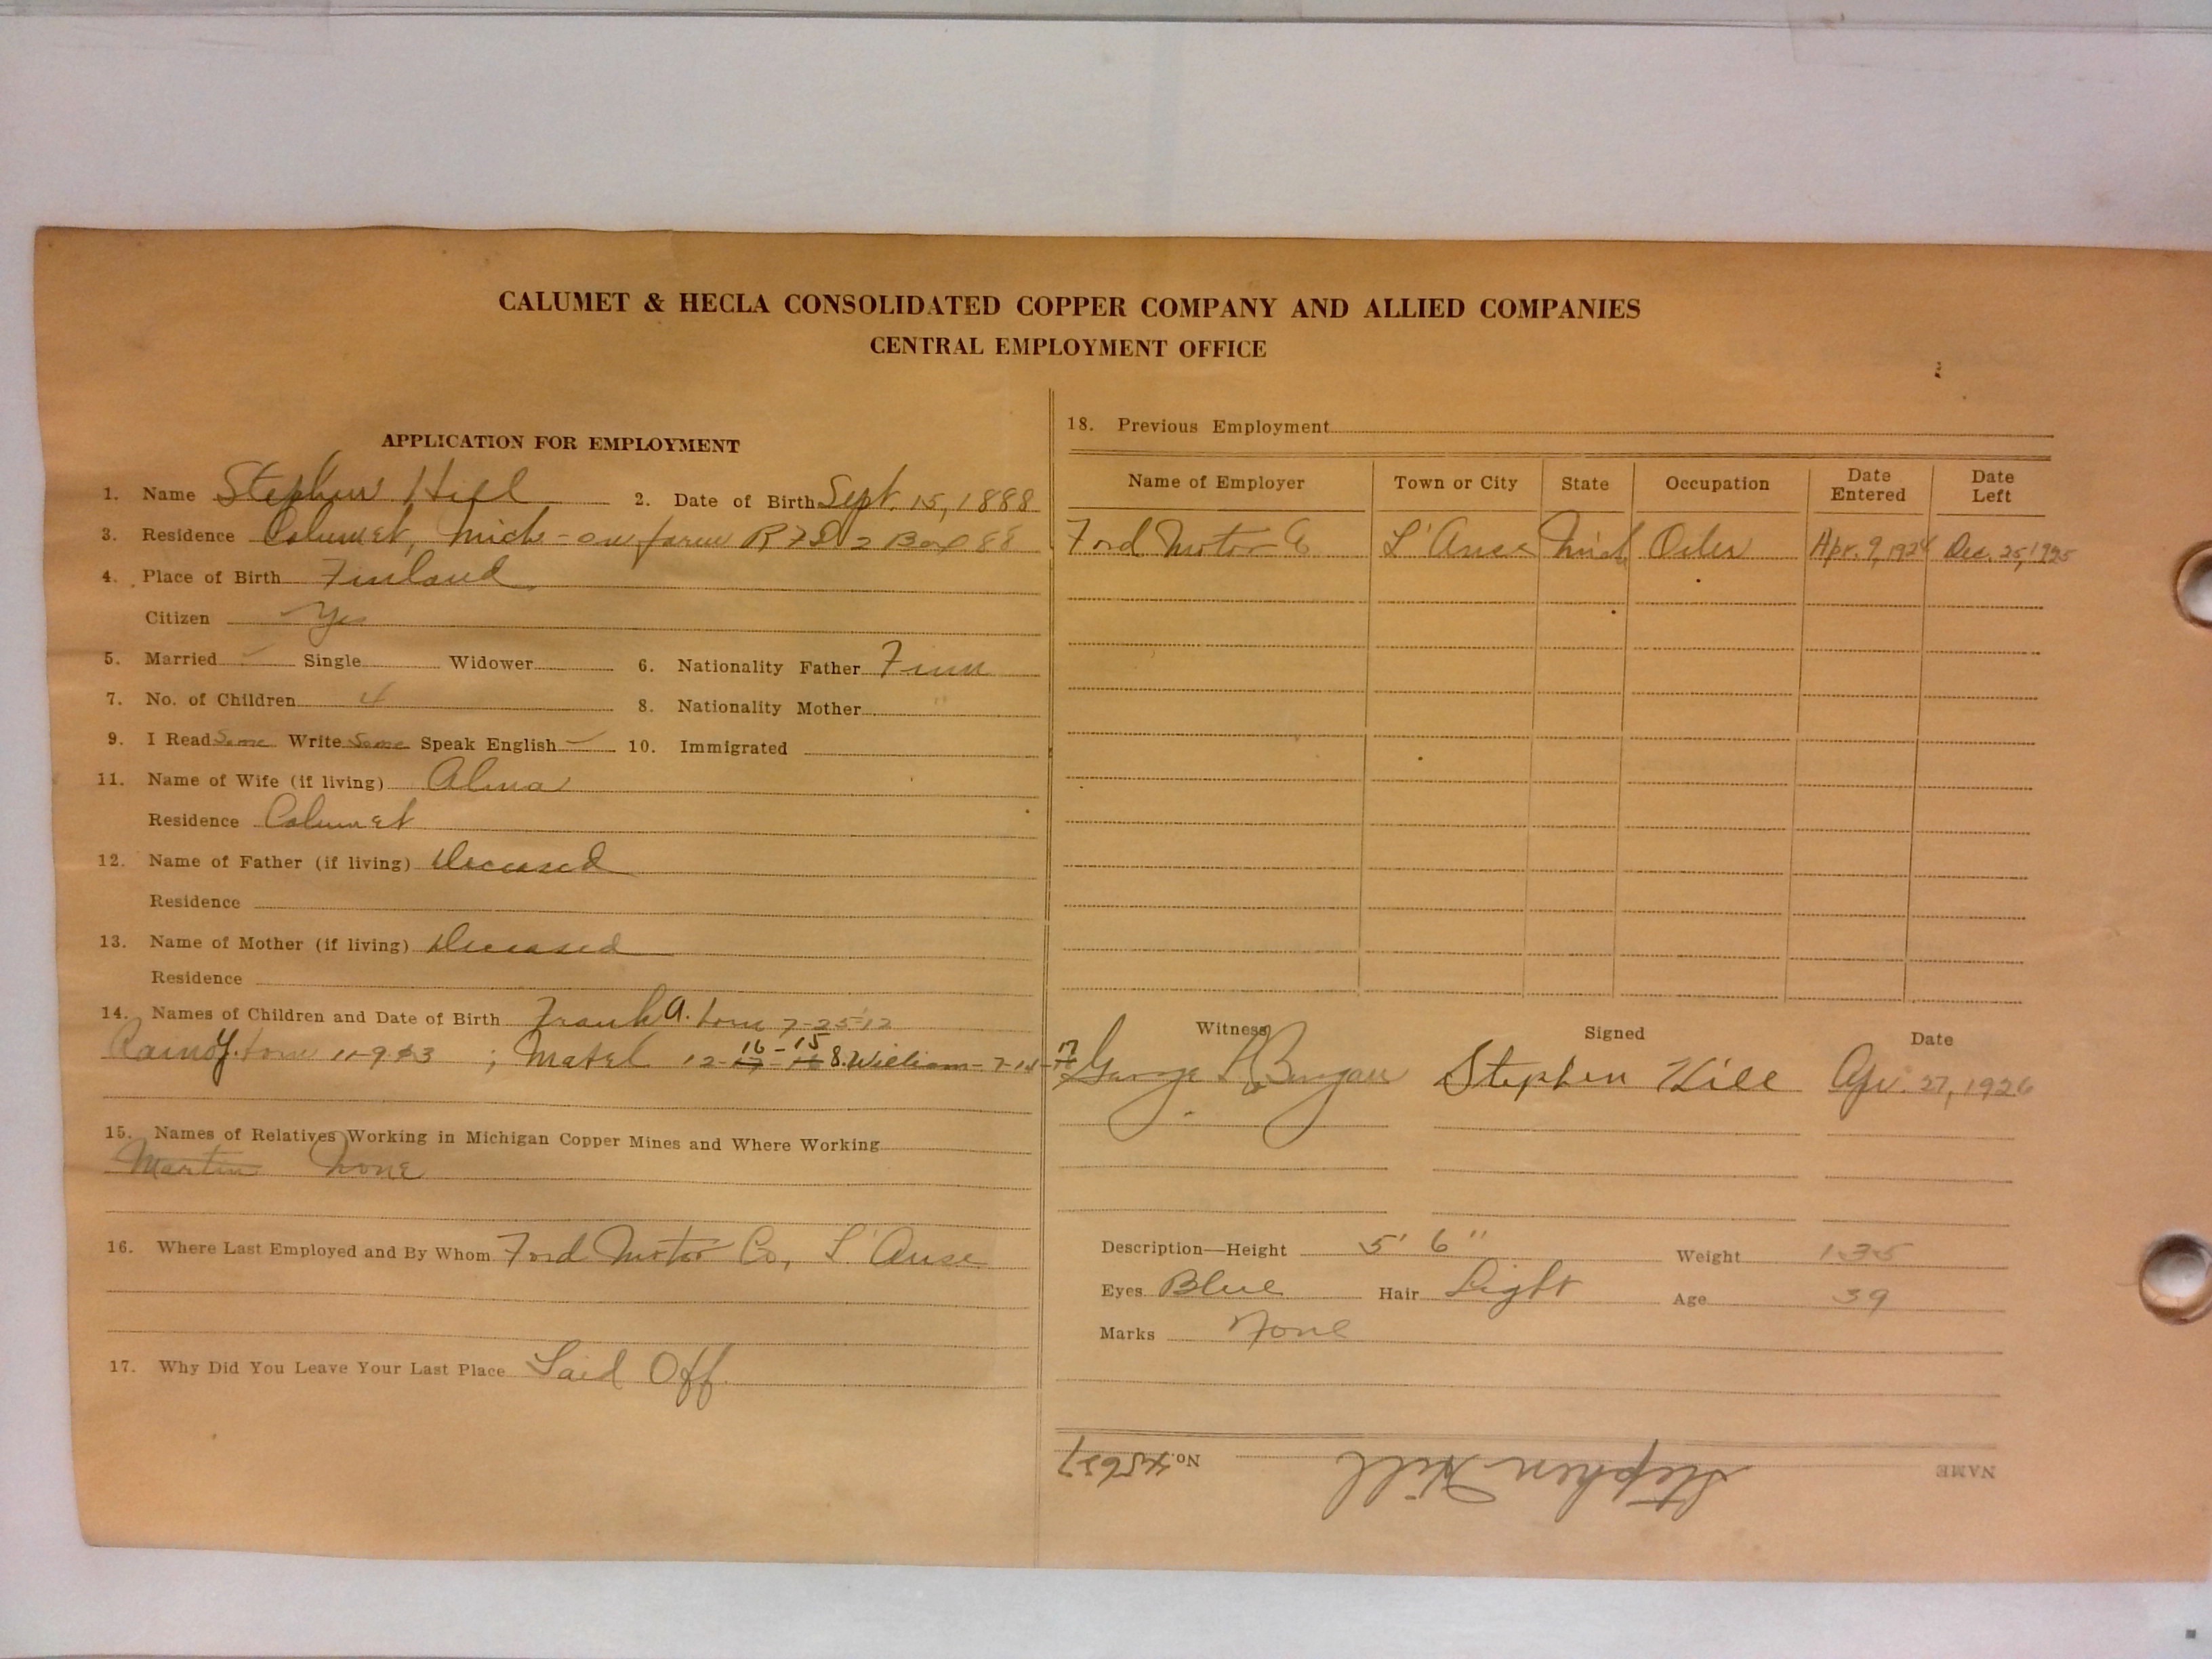 CALUMET & HECLA CONSOLIDATED COPPER COMPANY AND ALLIED COMPANIES
CENTRAL EMPLOYMENT OFFICE
APPLICATION FOR EMPLOYMENT
1. Name Stephen Hill 2. Date of Birth Sept. 15, 1888
3. Residence Calumet, Mich - on farm RFD 2 Box 88
4. Place of Birth Finland
Citizen Yes
5. Married ✓ Single Widower 6. Nationality Father Finn
7. No. of Children 4 8. Nationality Mother "
9. I Read Some Write Some Speak English ✓ 10. Immigrated
11. Name of Wife (if living) Alma
Residence Calumet
12. Name of Father (if living) Deceased
Residence
13. Name of Mother (if living) Deceased
Residence
14. Names of Children and Date of Birth Frank A. born 7-25-12
born 11-9-13 ; Mabel 12-16-15 & William - 7-14-17
15. Names of Relatives Working in Michigan Copper Mines and Where Working
Martin None
16. Where Last Employed and By Whom Ford Motor Co, L'Anse
17. Why Did You Leave Your Last Place Laid Off.
18. Previous Employment
Name of Employer Town or City State Occupation Date Entered Date Left
Ford Motor Co L'Anse Mich Oiler Apr. 9, 1924 Dec. 25, 1925
Witness Signed Date
George Stephen Hill Apr. 27, 1926
Description—Height 5' 6" Weight 135
Eyes Blue Hair Light Age 39
Marks None
NAME Stephen Hill No. 45637